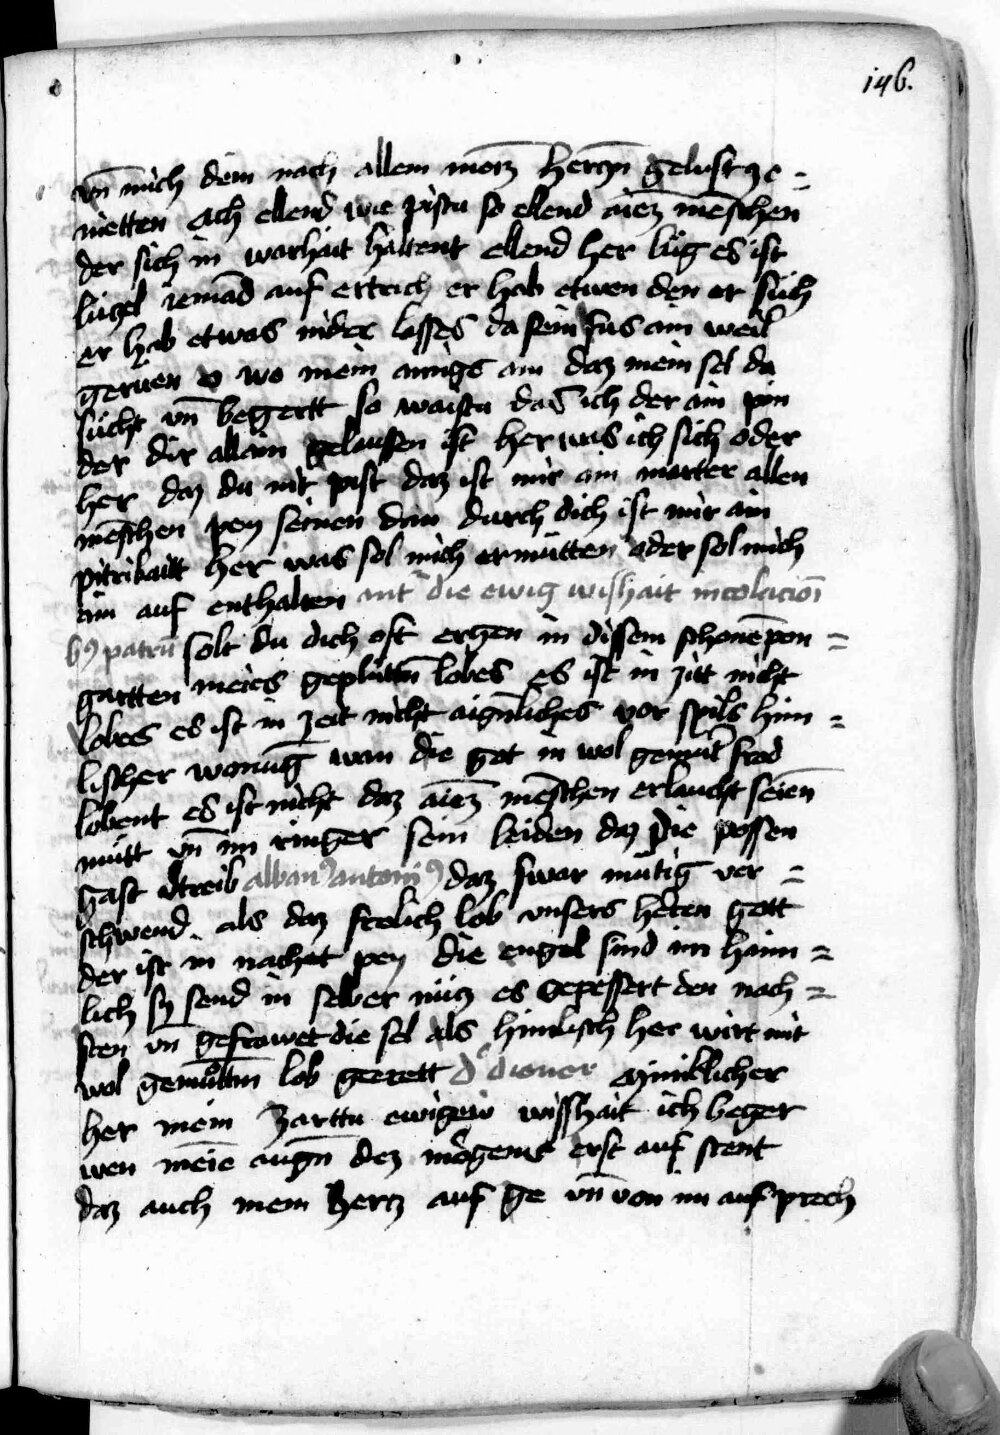 146.
vn̄ mich dem nach allem meīz herczn̄ gelust ge =
nietten Ach ellend wie pistu so ellend aīez menschen
der sich in warhait haltent ellend her lug es ist
lüczel iemād auf ertrich er hab etwen den er such
er hab etwas inder lasses da sein fus ain weil
geruen o wo mein ainigs ain daz mein sel da
sucht vn̄ begertt so waistu das ich der ain pin
der dir allain gelaussen ist her was ich sich oder
her daz du nit pist daz ist mir ain marter allen
menschen pey seinen dan durch dich ist mir ain
pitrikaitt her was sol mich ermütten oder sol mich
ain auf enthalten ant die ewig wishait in colacioī
b9 patrū solt du dich oft ergen in dissem schonē pon =
gartten meiēs geplutm̄ lobes es ist in zitt nicht
lobes es ist in zeit nicht aignlichs vor spils him =
lischer wonūg wan die got in wol gemut̄ frod
lobent es ist nicht daz aīez menschen erlaucht seinen
mutt vn̄ im ringer sein leiden daz die possen
gast vtreib alban9 antoni9 daz swar mutig ver =
schwend als daz frolich lob unsers heren gott
der ist in nachet pey die engel sind im haim =
lich sy send in selber nücz es gepessert den nach =
sten vn gefrowet die sel als himlisch her wirt mit
wol gemuttm̄ lob geerett d diener Minklicher
her mein zarttu ewigew wisshait ich beger
wen meīe augn̄ dez morgens erst auf stent
daz auch mein hertz auf ge vn̄ von im auf prech